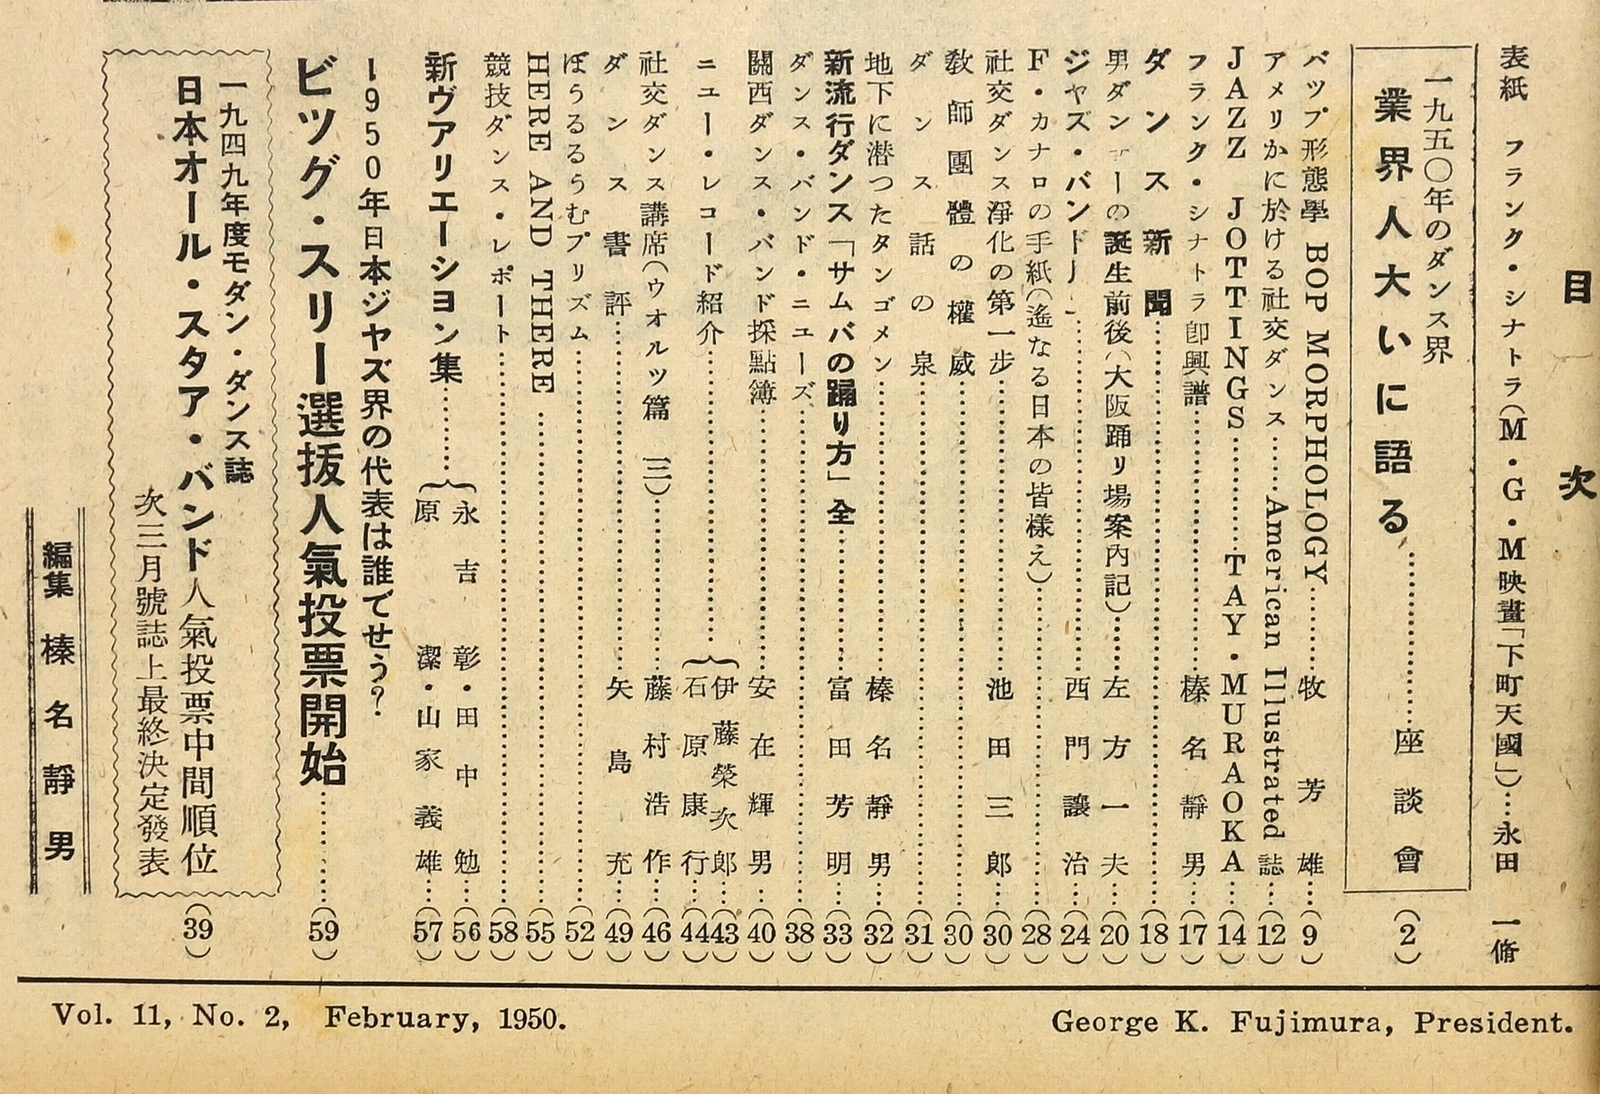 目次
表紙 フランク・シナトラ(M・G・M映畫「下町天國」)…永田一脩
一九五〇年のダンス界
業界人大いに語る………座談會(2)
バップ形態學 BOP MORPHOLOGY……牧芳雄…(9)
アメリカに於ける社交ダンス……American Illustrated 誌…(12)
JAZZ JOTTINGS………TAY・MURAOKA…(14)
フランク・シナトラ卽興譜………榛名靜男…(17)
ダンス新聞………(18)
男ダンサーの誕生前後(大阪踊り場案内記)……左方一夫…(20)
ジャズ・バンド………西門讓治…(24)
F・カナロの手紙(遙なる日本の皆様え)………(28)
社交ダンス淨化の第一步………池田三郎…(30)
敎師團體の權威………(30)
ダンス話の泉………(31)
地下に潜つたタンゴメン………榛名靜男…(32)
新流行ダンス「サムバの踊り方」全………富田芳明…(33)
ダンス・バンド・ニユーズ………(38)
關西ダンス・バンド採點簿………安在輝男…(40)
ニユー・レコード紹介………{伊藤榮次郎…(43)
石原康行…(44)
社交ダンス講席(ウオルツ篇 三)………藤村浩作…(46)
ダンス書評………矢島充…(49)
ぼうるるうむプリズム………(52)
HERE AND THERE………(55)
競技ダンス・レポート………(58)
新ヴアリエーシヨン集………{永吉彰・田中勉…(56)
原潔・山家義雄…(57)
1950年日本ジヤズ界の代表は誰でせう?
ビツグ・スリー選抜人氣投票開始………(59)
一九四九年度モダン・ダンス誌
日本オール・スタア・バンド人氣投票中間順位(39)
次三月號誌上最終決定發表
編集 榛名靜男
Vol. 11, No. 2, February, 1950.
George K. Fujimura, President.